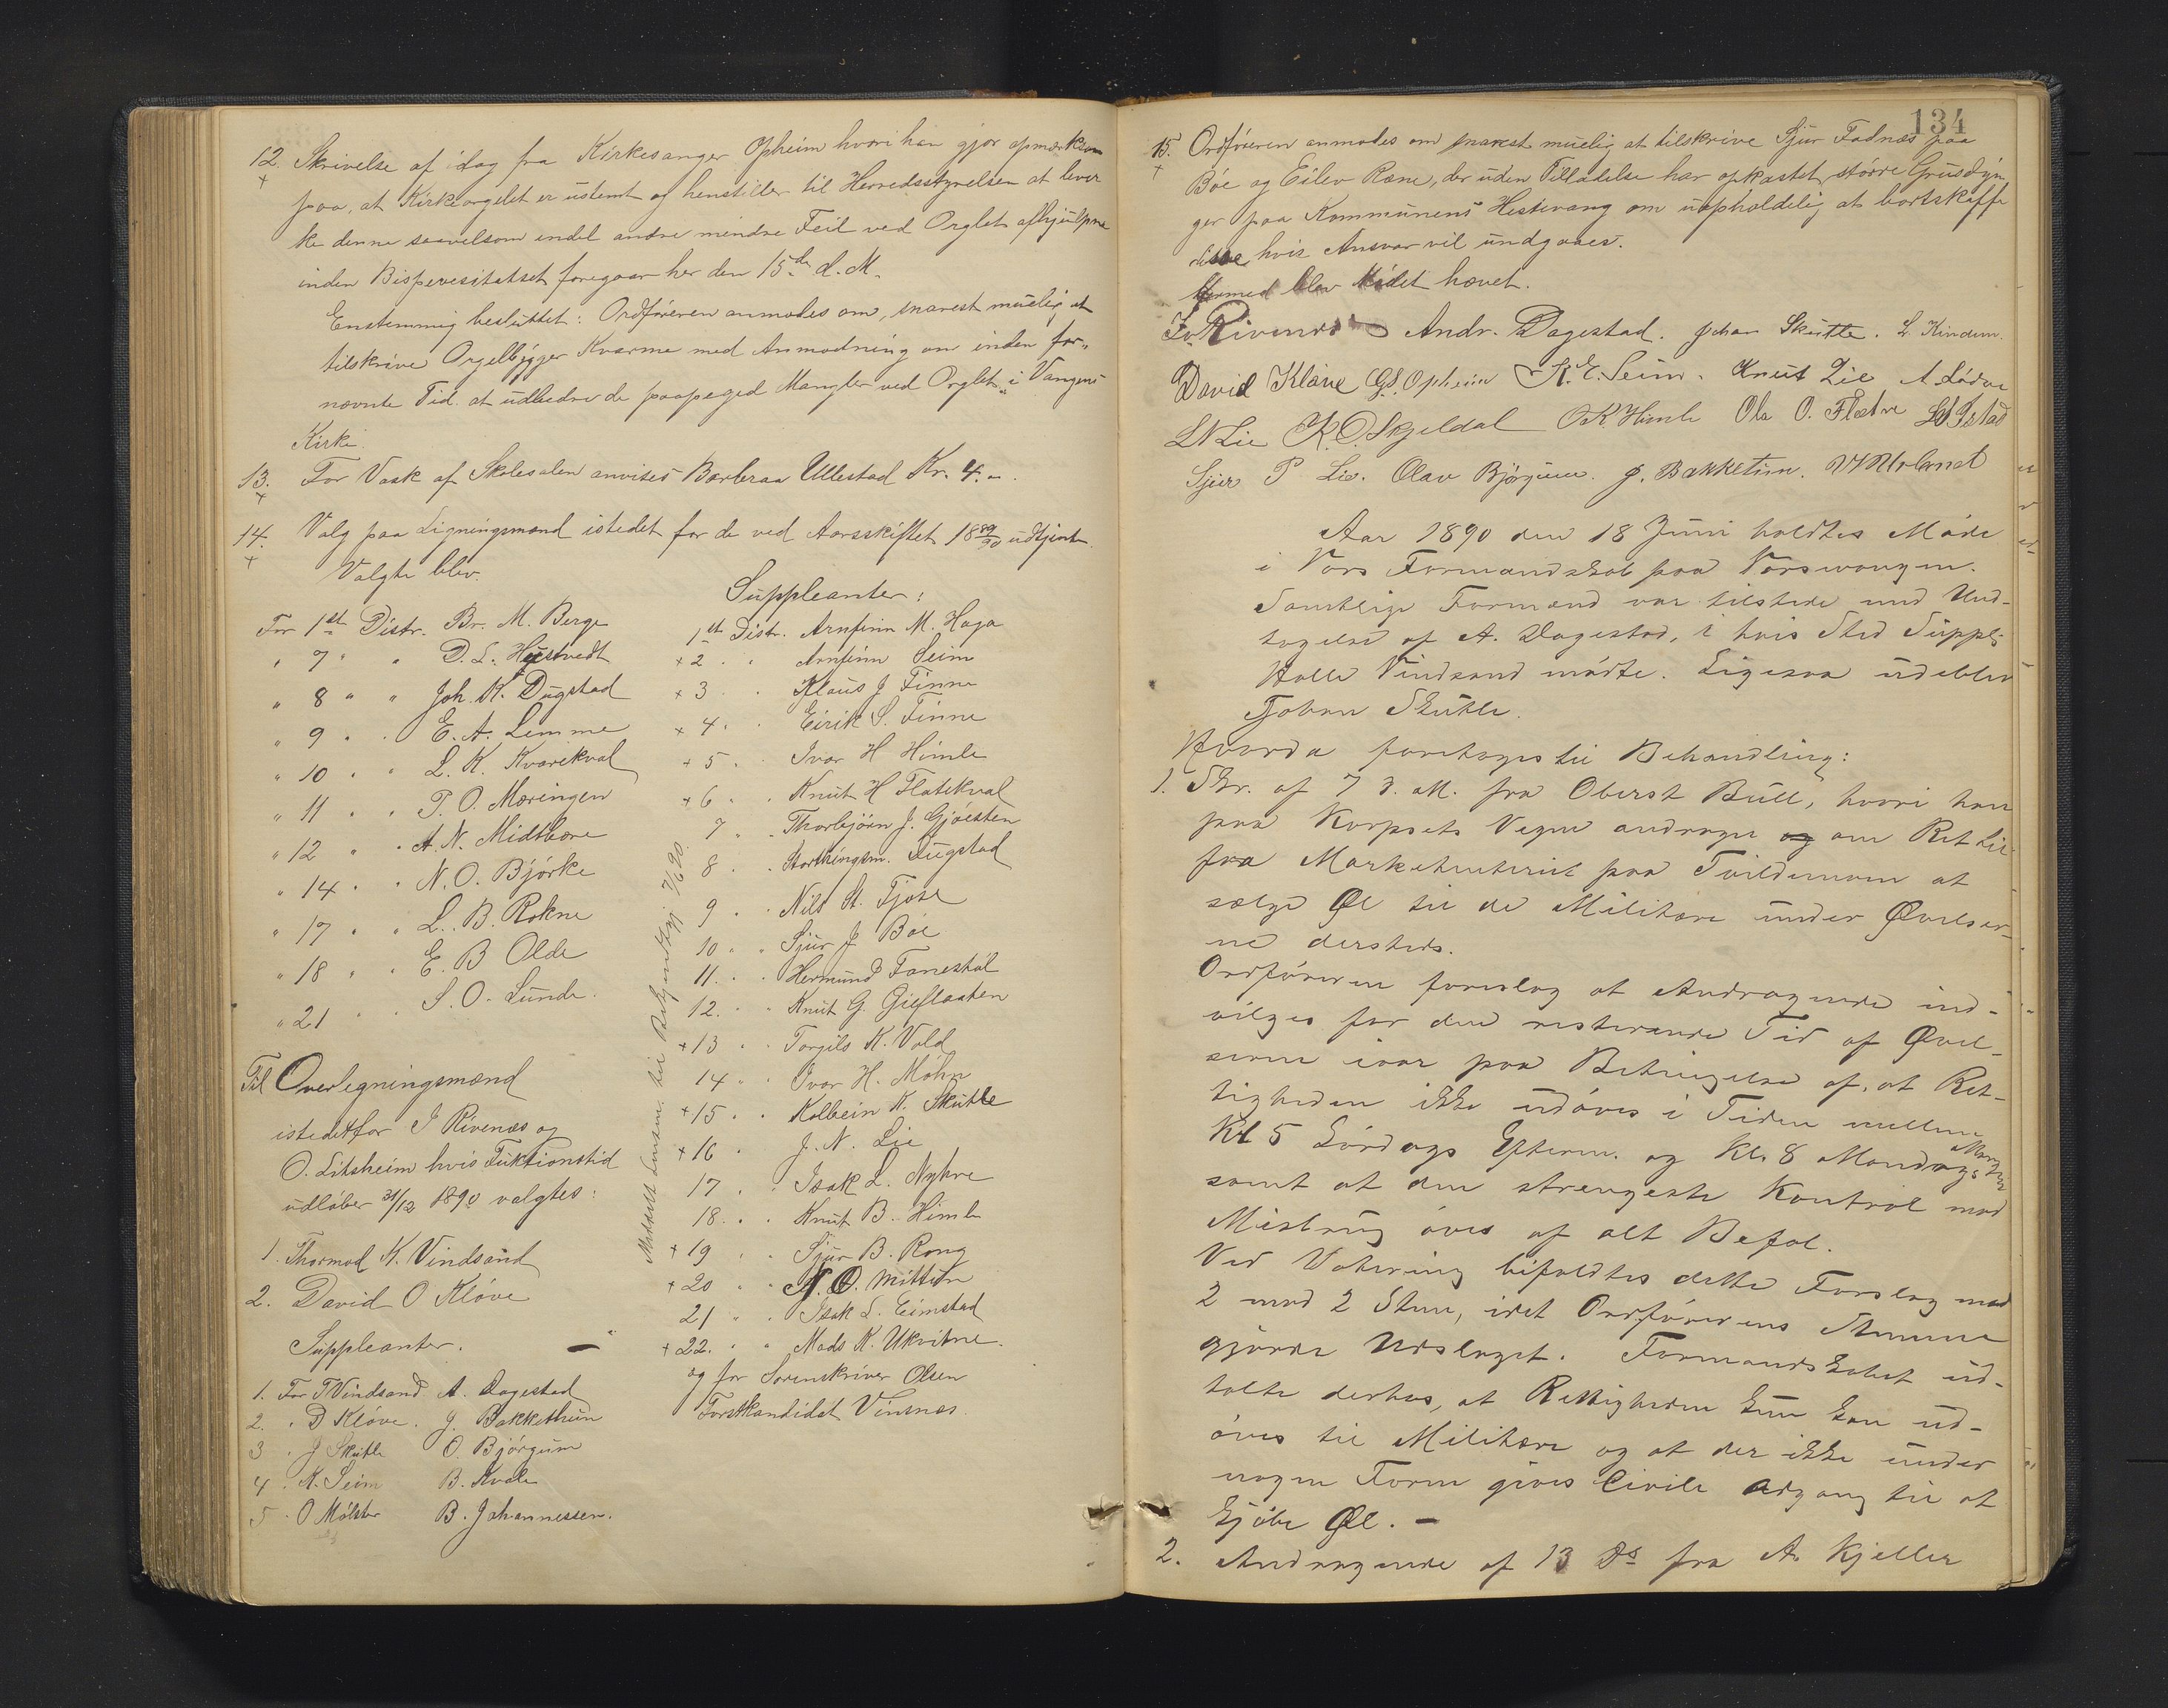 12. Skrivelse af idag fra Kirkesanger Opheim hvori han gjør opmærksom
+
paa, at Kirkeorgelet er ustemt og henstiller til Herredsstyrelsen at bevir
ke denne saavelsom endel andre mindre Feil ved Orglet afhjulpne
inden Bispevesitatset foregaar her den 15de d. M.
Enstemmig besluttet: Ordføreren anmodes om, snarest muelig, at
tilskrive Orgelbygger Kvarme med Anmodning om inden for„
nævnte Tid at udbedre de paapeged Mangler ved Orglet i Vangens
Kirke.
13. For Vask af Skolesalen anvises Barbraa Ullestad Kr. 4.„
+
14. Valg paa Ligningsmænd istedet for de ved Aarsskiftet 1889/90 udtjente.
+
Valgte blev.
For 1st Distr. Br. M. Berge
„ 7 „ „ D. L. Hustvedt
„ 8 „ „ Joh. K. Dugstad
„ 9 „ „ E. A. Lemme
„ 10 „ „ L. K. Kvarekval
„ 11 „ „ P. O. Mæringen
„ 12 „ „ A. N. Midtbære
„ 14 „ „ N. O. Bjørke
„ 17 „ „ L. B. Rokne
„ 18 „ „ E. B Olde
„ 21 „ „ S. O. Lunde.
Til Overlegningsmænd
istedetfor I Rivenæs og
O. Litsheim hvis Fuktionstid
udløber 31/12 1890 valgtes:
1. Thormod K. Vindsand
2. David O Kløve
Suppleanter. —
1. For T Vindsand. A. Dagestad
2. „ D Kløve. J. Bakkethun
3 „ J Skutle O. Bjørgum
4 „ K. Seim B. Kvale
5 „ O Mølster B. Johannessen.
Suppleanter:
1st Distr. Arnfinn M. Haga
+ 2 „ „ Arnfinn Seim
+ 3 „ „ Klaus J Finne
+ 4 „ „ Eirik S. Finne
+ 5 „ „ Ivar H Himle
+ 6 „ „ Knut H Flatekval
7 „ „ Thorbjørn J. Gjøesten
8 „ „ Storthingsm. Dugstad
9 „ „ Nils A. Tjose
10 „ „ Sjur J Böe
11. „ „ Hermund Fænestøl
12. „ „ Knut G. Gjeflaaten
+ 13 „ „ Torgils K. Vold
14 „ „ Ivar H. Möhn
+ 15 „ „ Kolbein K. Skutle
+ 16 „ J. N. Lie
17 „ „ Isak L. Nyhre
18. „ „ Knut B. Himle
+ 19 „ „ Sjur B. Rong
+ 20 „ „ N. O. Mittun
21 „ „ Isak L. Eimstad
+ 22. „ „ Mads K. Ukvitne.
og for Sorenskriver Olsen
Forstkandidat Vinsnæs.
Meddelt Lensm. til Bekjentgj. 7/6 90.
134
15. Ordføreren anmodes om snarest muelig at tilskrive Sjur Fadnæs paa
+
Böe og Eilev Ræne, der uden Tilladelse har opkastet større Grusdyn
ger paa Kommunens Hestevang om uopholdelig at bortskaffe
disse hvis Ansvar vil undgaaes.
Hermed blev Mödet hævet.
Iv Rivenæs Andr. Dagestad. Johan Skutle. L. Kindem.
David Kløve G. S. Opheim K. E. Seim. Knut Lie A Lödve
L N Lie K. O. Skjeldal O K. Himle Ola O. Flætre L Istad
Sjur P Lie. Olav Bjørgum. J. Bakketun. Urland
Aar 1890 den 18 Juni holdtes Möde
i Vors Formandskab paa Vorsevangen.
Samtlige Formænd var tilstede med Und-
tagelse af A. Dagestad, i hvis Sted Suppl:
Halle Vindsand mödte. Ligesaa udeblev
Johan Skutle.
Hvorda foretoges til Behandling:
1. Skr. af 7 d. M. fra Oberst Bull, hvori han
paa Korpsets Vegne andrager om Ret til
fra Marketenteriet paa Tvildemoen at
sælge Øl til de Militære under Øvelser-
ne dersteds.
Ordföreren foreslog at Andragende ind-
vilges for den resterende Tid af Øvel-
serne iaar paa Betingelse af, at Ret-
tigheden ikke udöves i Tiden mellem
Kl 5 Lördags Efterm. og Kl. 8 Mandags Morgen
samt at den strengeste Kontrol mod
Misbrug öves af alt Befal.
Ved Votering bifaldtes dette Forslag med
2 mod 2 Stem, idet Ordförerens Stemme
gjorde Udslaget. Formandskabet ud-
talte derhos, at Rettigheden kun kan ud-
öves til Militære og at der ikke under
nogen Form gives Civile Adgang til at
kjöbe Øl. —
2. Andragende af 13 Ds fra A. Kjeller